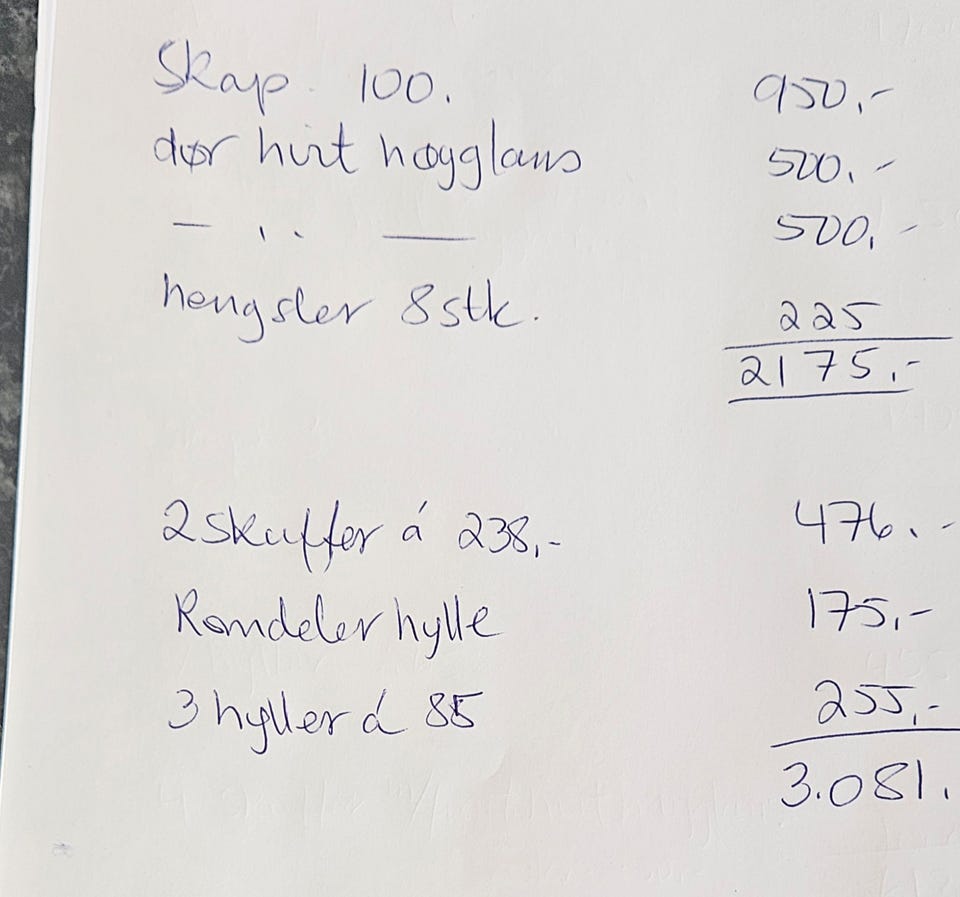 Skap. 100. 950,-
dør hvit høyglans 500,-
— ,, — 500,-
hengsler 8stk. 225
2175,-
2 skuffer á 238,- 476,-
Romdeler hylle 175,-
3 hyller á 85 255,-
3.081,